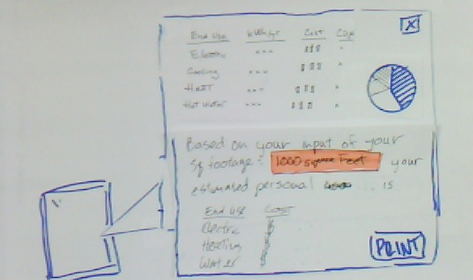 X
End Use kWh/yr Cost
Electric $$$
Cooling $$$
Heat $$$
Hot Water $$$
Based on your input of your
sq footage: 1000 square Feet your
estimated personal is
End Use Cost
Electric $
Heating $
Water $
PRINT